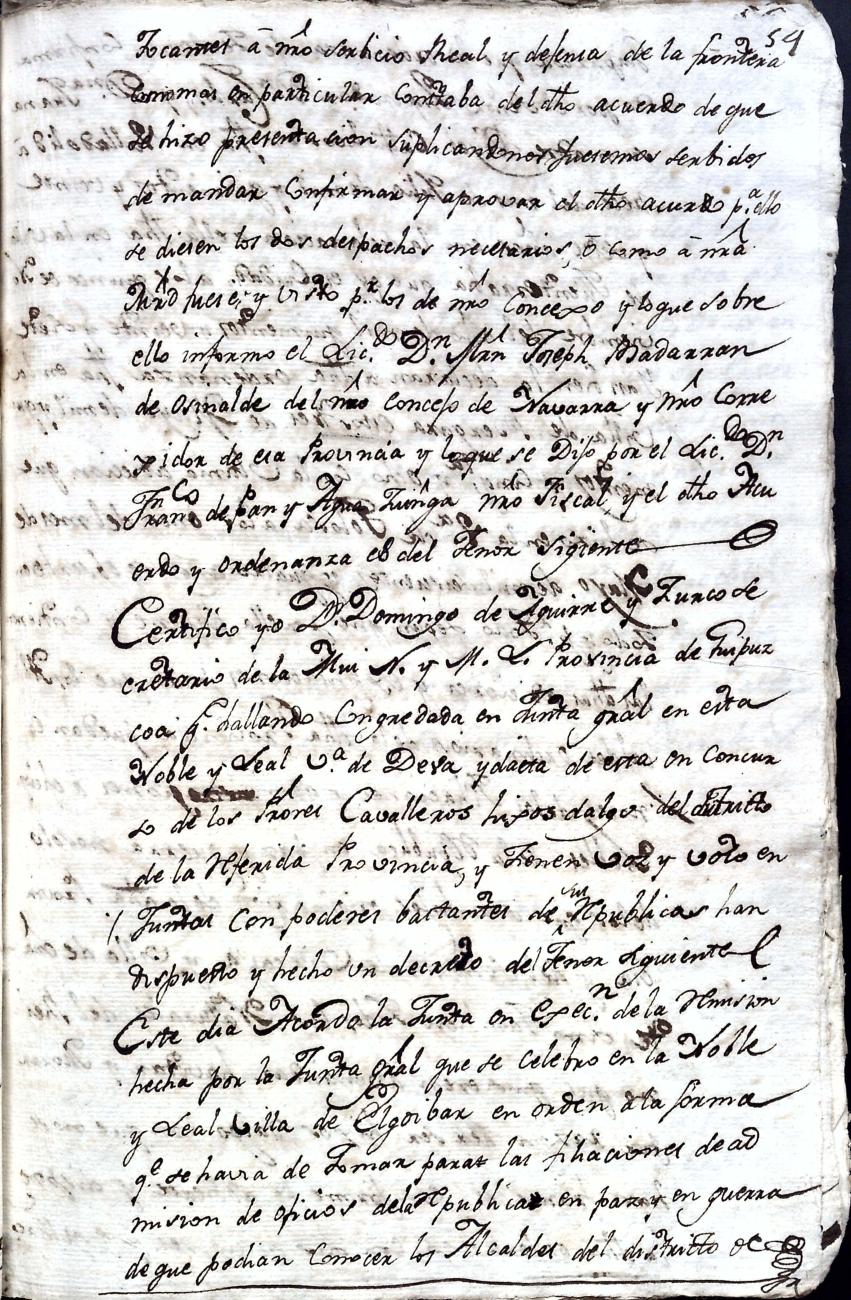 54
Tocantes â nrô serbicio Real y defensa de la frontera
como mas en particular Constaba del dhô acuerdo de que
se hizo presentacion suplicandonos fuesemos serbidos
de mandar Confirmar y aprovar el dhô acuerdo p.ª ello
se diesen los dos despachos necesarios, ô como â nrâ
Mrd fuese, y visto p.r los de nrô Concexo y loque sobre
ello informo el Lic.do D.n Mrn Joseph Badarran
de Osinalde del nrô Consejo de Navarra y nrô Corre
xidor de esa Provincia y loque se Dijo por el Lic.do D.n
Fran.co de Pan y Agua Zuñiga nrô Fiscal, y el dhô Acu
erdo y ordenanza es del Tenor Sigiente
Certifico yo D.n Domingo de Aguirre y Zurco Se
cretario de la Mui N. y M. L. Provincia de Guipuz
coa q.e hallando Congregada en Junta grâl en esta
Noble y Leal V.ª de Deva ydacta de esta en Concur
so de los Srôres Cavalleros hixos dalgo del distritto
de la Referida Provincia, y Tienen Voz y Voto en
Juntas Con poderes bastantes de sus Republicas han
dispuesto y hecho un decreto del Tenor Siguiente
Este dia Acordo la Junta en Exec.n de la Remision
hecha por la Junta grâl que se Celebro en la Noble
y Leal Villa de Elgoibar en orden â la forma
q.e se havia de Tomar para las filiaciones de ad
mision de oficios dela Republica en paz y en guerra
de que podian Conocer los Alcaldes del distritto de